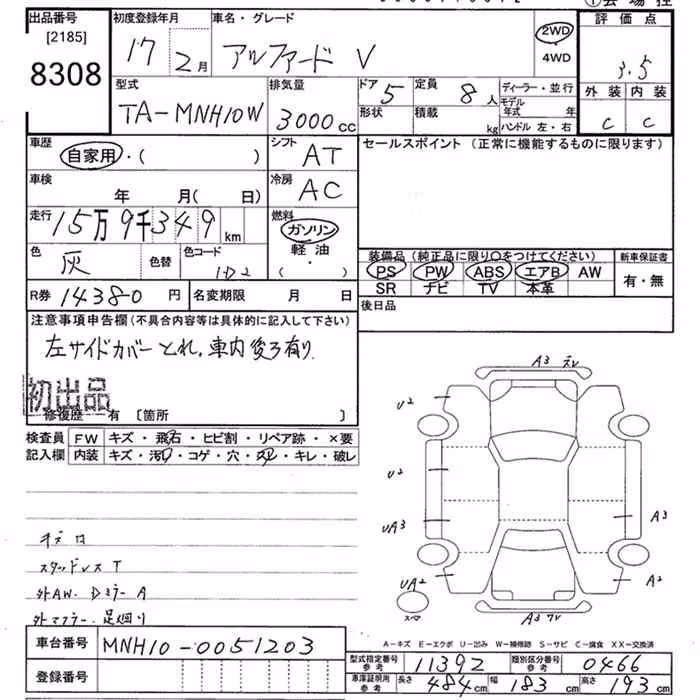 ①会場控
出品番号 [2185] 8308
初度登録年月 17 2月
車名・グレード アルファード V
2WD・4WD
評価点 3.5
外装 内装
C C
型式 TA-MNH10W
排気量 3000cc
ドア 5 形状
定員 8人 積載 kg
ディーラー・並行
モデル年式 年
ハンドル 左・右
車歴 自家用・( )
シフト AT
セールスポイント (正常に機能するものに限ります)
車検 年 月(日)
冷房 AC
走行 15万9千349km
燃料 ガソリン 軽油 (・)
色 灰 色替 色コード 1D2
装備品 (純正品に限り○をつけてください) 新車保証書
PS PW ABS エアB AW 有・無
SR ナビ TV 本革
R券 14380円 名変期限 月 日
後日品
注意事項申告欄 (不具合内容等は具体的に記入して下さい)
左サイドカバーとれ,車内後ろ有り
初出品
修復歴 有 [箇所 ]
検査員 FW キズ・飛石・ヒビ割・リペア跡・×要
記入欄 内装 キズ・汚レ・コゲ・穴・スレ・キレ・破レ
A3
U2
U2
UA3 A3
UA2 A2
スペア
A3
スタッドレスT
外AW. Dミラー A
外マフラー.足廻り
A-キズ E-エクボ U-凹み W-補修跡 S-サビ C-腐食 XX-交換済
車台番号 MNH10-0051203
型式指定番号 参考 11392 類別区分番号 参考 0466
登録番号
車庫証明用 参考 長さ 484cm 幅 183cm 高さ 193cm